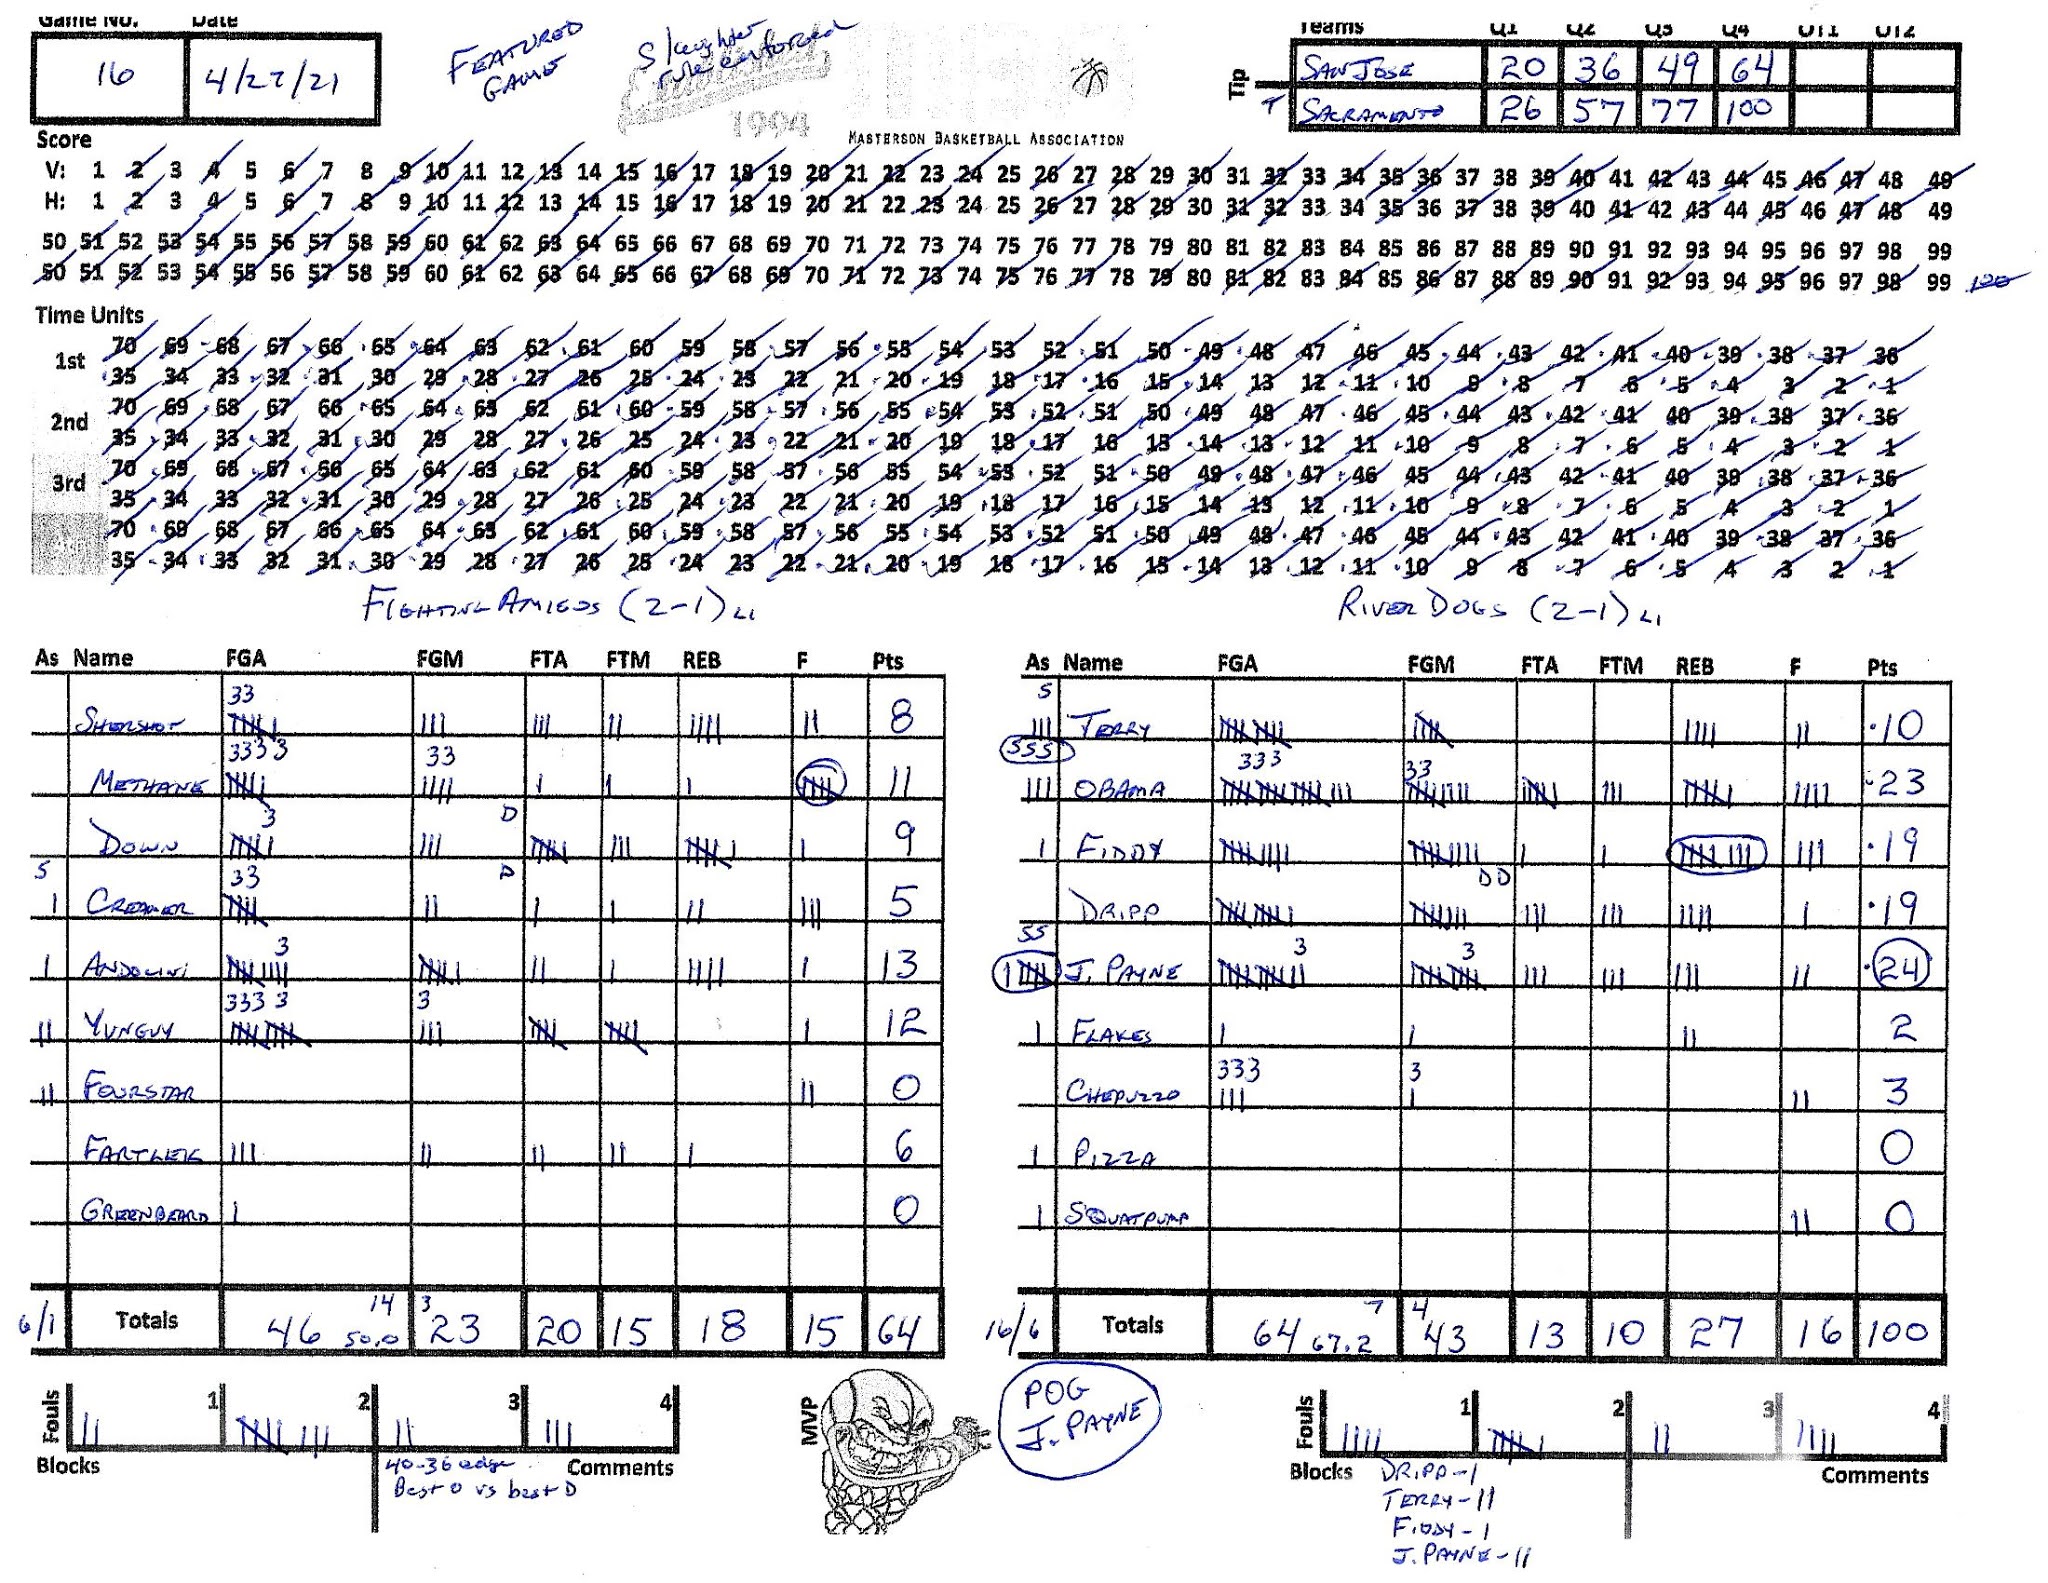 Game No. Date
16 4/27/21
FEATURED GAME
Slaughter rule enforced
1994
MASTERSON BASKETBALL ASSOCIATION
Teams Q1 Q2 Q3 Q4 OT1 OT2
Tip
SAN JOSE 20 36 49 64
T SACRAMENTO 26 57 77 100
Score
V: 1 2 3 4 5 6 7 8 9 10 11 12 13 14 15 16 17 18 19 20 21 22 23 24 25 26 27 28 29 30 31 32 33 34 35 36 37 38 39 40 41 42 43 44 45 46 47 48 49
H: 1 2 3 4 5 6 7 8 9 10 11 12 13 14 15 16 17 18 19 20 21 22 23 24 25 26 27 28 29 30 31 32 33 34 35 36 37 38 39 40 41 42 43 44 45 46 47 48 49
50 51 52 53 54 55 56 57 58 59 60 61 62 63 64 65 66 67 68 69 70 71 72 73 74 75 76 77 78 79 80 81 82 83 84 85 86 87 88 89 90 91 92 93 94 95 96 97 98 99
50 51 52 53 54 55 56 57 58 59 60 61 62 63 64 65 66 67 68 69 70 71 72 73 74 75 76 77 78 79 80 81 82 83 84 85 86 87 88 89 90 91 92 93 94 95 96 97 98 99 100
Time Units
1st 70 69 68 67 66 65 64 63 62 61 60 59 58 57 56 55 54 53 52 51 50 49 48 47 46 45 44 43 42 41 40 39 38 37 36
35 34 33 32 31 30 29 28 27 26 25 24 23 22 21 20 19 18 17 16 15 14 13 12 11 10 9 8 7 6 5 4 3 2 1
2nd 70 69 68 67 66 65 64 63 62 61 60 59 58 57 56 55 54 53 52 51 50 49 48 47 46 45 44 43 42 41 40 39 38 37 36
35 34 33 32 31 30 29 28 27 26 25 24 23 22 21 20 19 18 17 16 15 14 13 12 11 10 9 8 7 6 5 4 3 2 1
3rd 70 69 68 67 66 65 64 63 62 61 60 59 58 57 56 55 54 53 52 51 50 49 48 47 46 45 44 43 42 41 40 39 38 37 36
35 34 33 32 31 30 29 28 27 26 25 24 23 22 21 20 19 18 17 16 15 14 13 12 11 10 9 8 7 6 5 4 3 2 1
4th 70 69 68 67 66 65 64 63 62 61 60 59 58 57 56 55 54 53 52 51 50 49 48 47 46 45 44 43 42 41 40 39 38 37 36
35 34 33 32 31 30 29 28 27 26 25 24 23 22 21 20 19 18 17 16 15 14 13 12 11 10 9 8 7 6 5 4 3 2 1
FIGHTING AMIGOS (2-1) L1
As Name FGA FGM FTA FTM REB F Pts
33
SHORSHOT 8
3333 33
METHANE 11
3 D
DOWN 9
S 33 D
CREAMER 5
3
ANDOLINI 13
333 3 3
YUNGUY 12
FOURSTAR 0
FARTLEK 6
GREENBEARD 0
6/1 Totals 46 14 50.0 3 23 20 15 18 15 64
Fouls 1 2 3 4
Blocks
40-36 edge
Best O vs best D
Comments
MVP
POG
J. PAYNE
RIVER DOGS (2-1) L1
As Name FGA FGM FTA FTM REB F Pts
S
TERRY 10
SSS 333 33
OBAMA 23
FIDDY 19
DD
DRIPP 19
SS 3 3
J. PAYNE 24
FLAKES 2
333 3
CHEPUZZO 3
PIZZA 0
SQUATPUMP 0
16/6 Totals 64 7 67.2 4 43 13 10 27 16 100
Fouls 1 2 3 4
Blocks Comments
DRIPP-1
TERRY-11
FIDDY-1
J. PAYNE-11